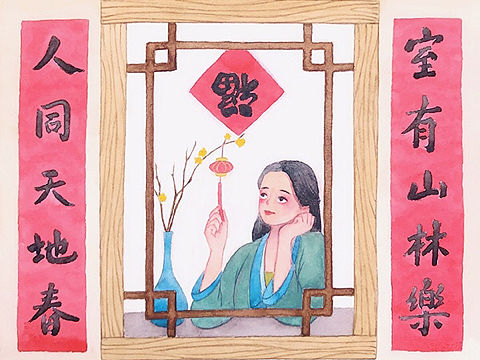 室有山林樂
人同天地春
福